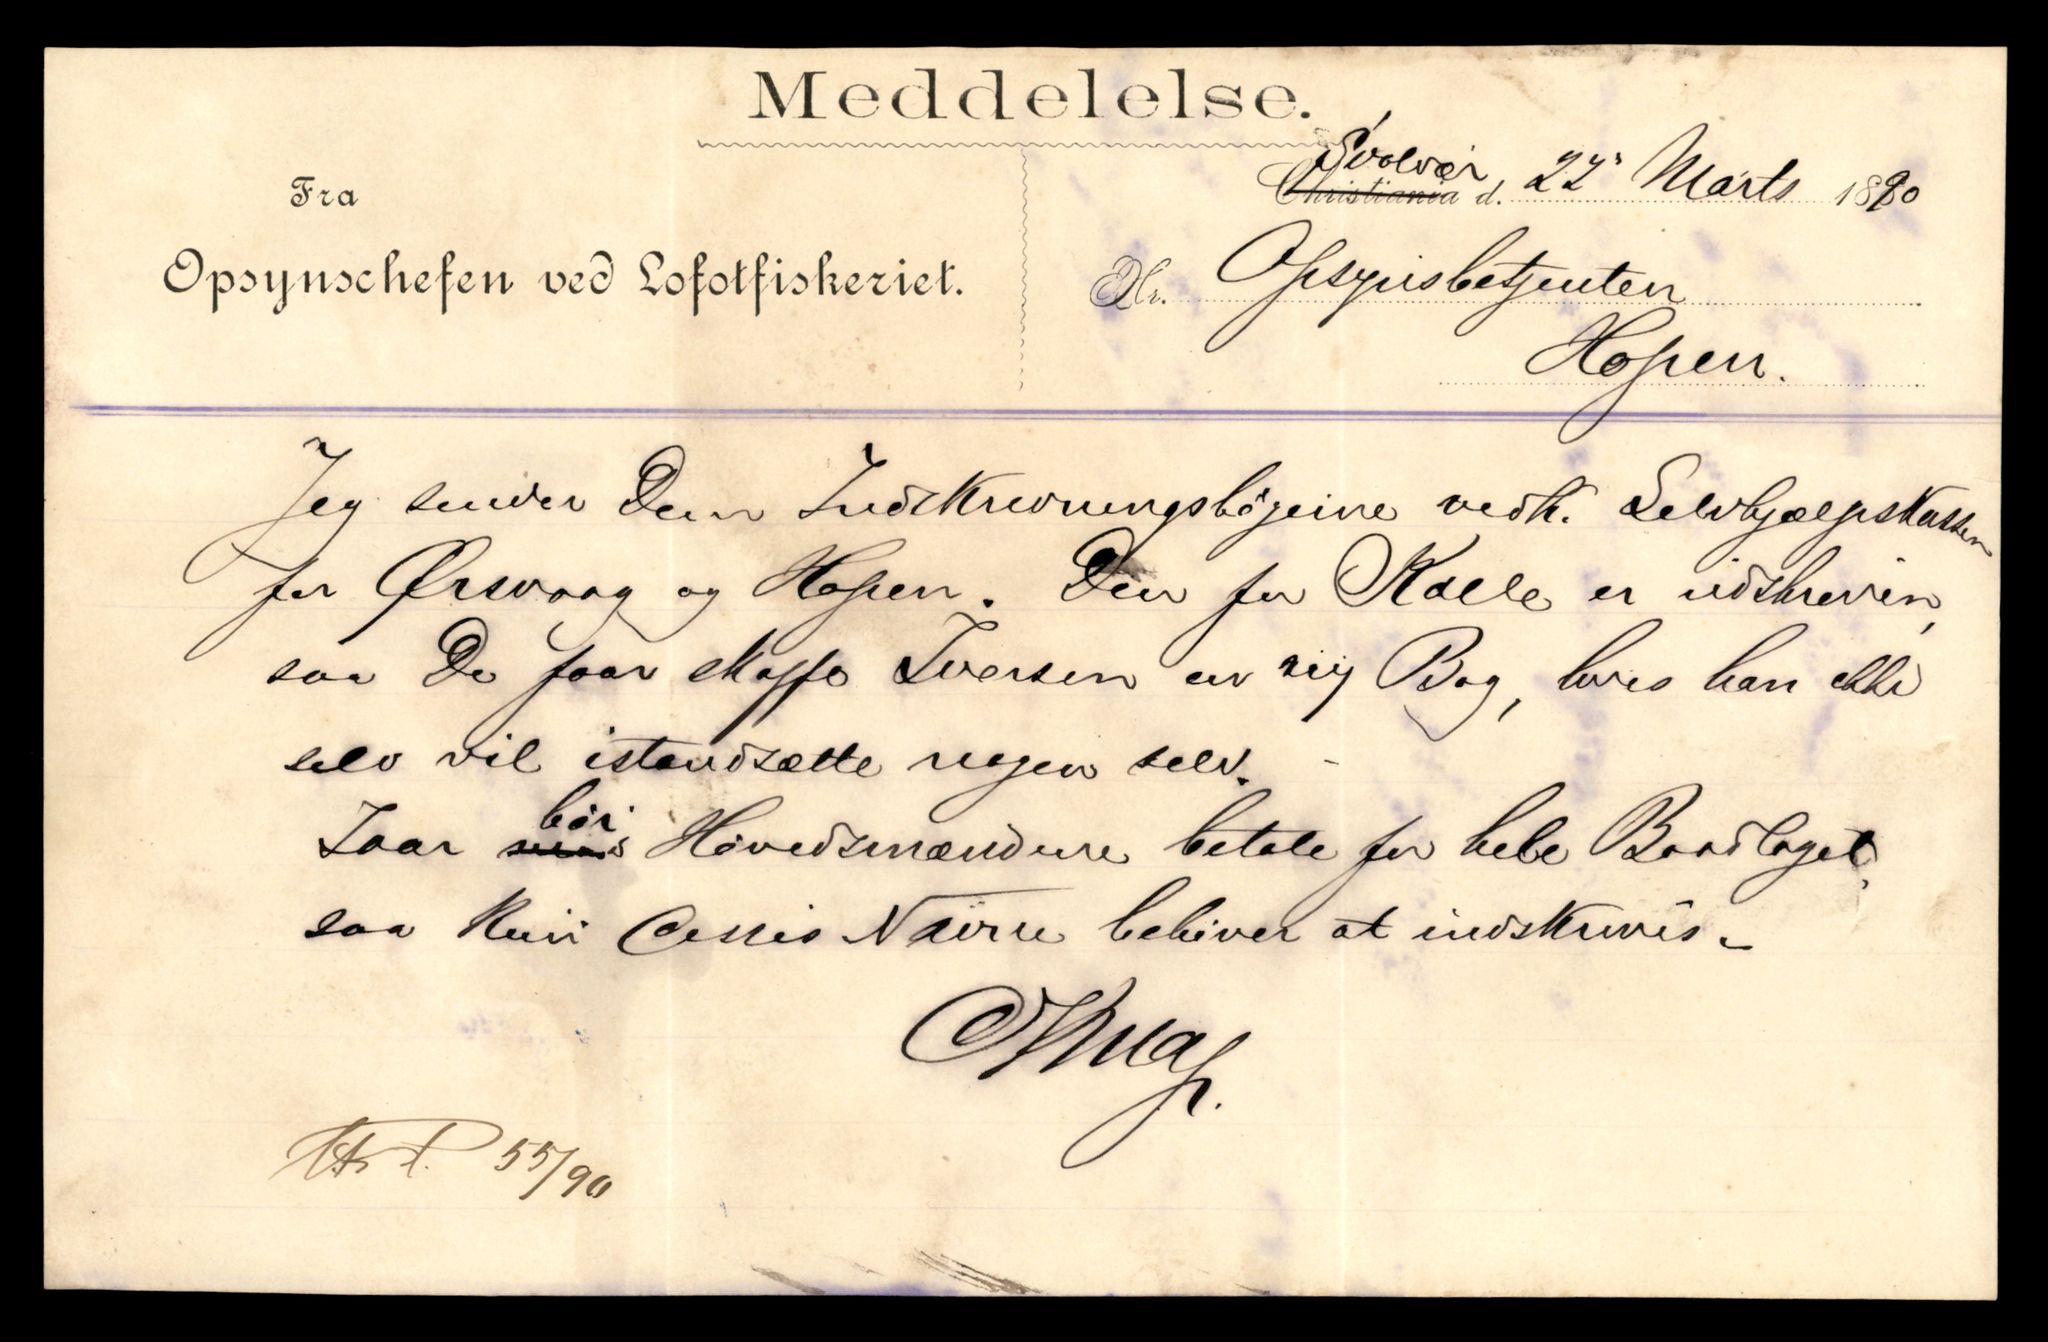 Meddelelse.
Fra
Opsynschefen ved Lofotfiskeriet.
Svolvær
Christiania d. 22 Marts 1890
Hr. Opsynsbetjenten
Hopen.
Jeg sender Dem Indskrivningsbøgerne vedk. Selvhjælpskassen
for Ørsvaag og Hopen. Den for Kalle er udskreven,
saa De faar skaffe Iversen en ny Bog, hvis han ikke
selv vil istandsætte nogen selv.
bør
Iaar Høvedsmændene betale for hele Baadlaget,
saa kun disses Navne behøver at indskrives.
55/90